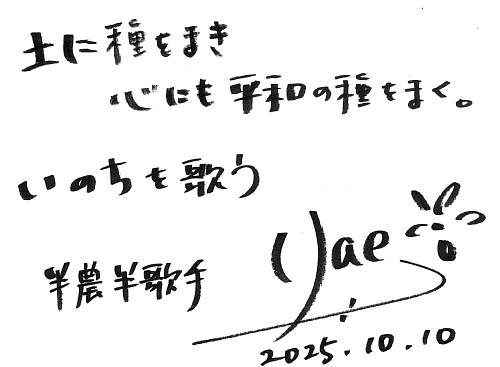 土に種をまき
心にも平和の種をまく。
いのちを歌う
半農半歌手
Yae
2025.10.10